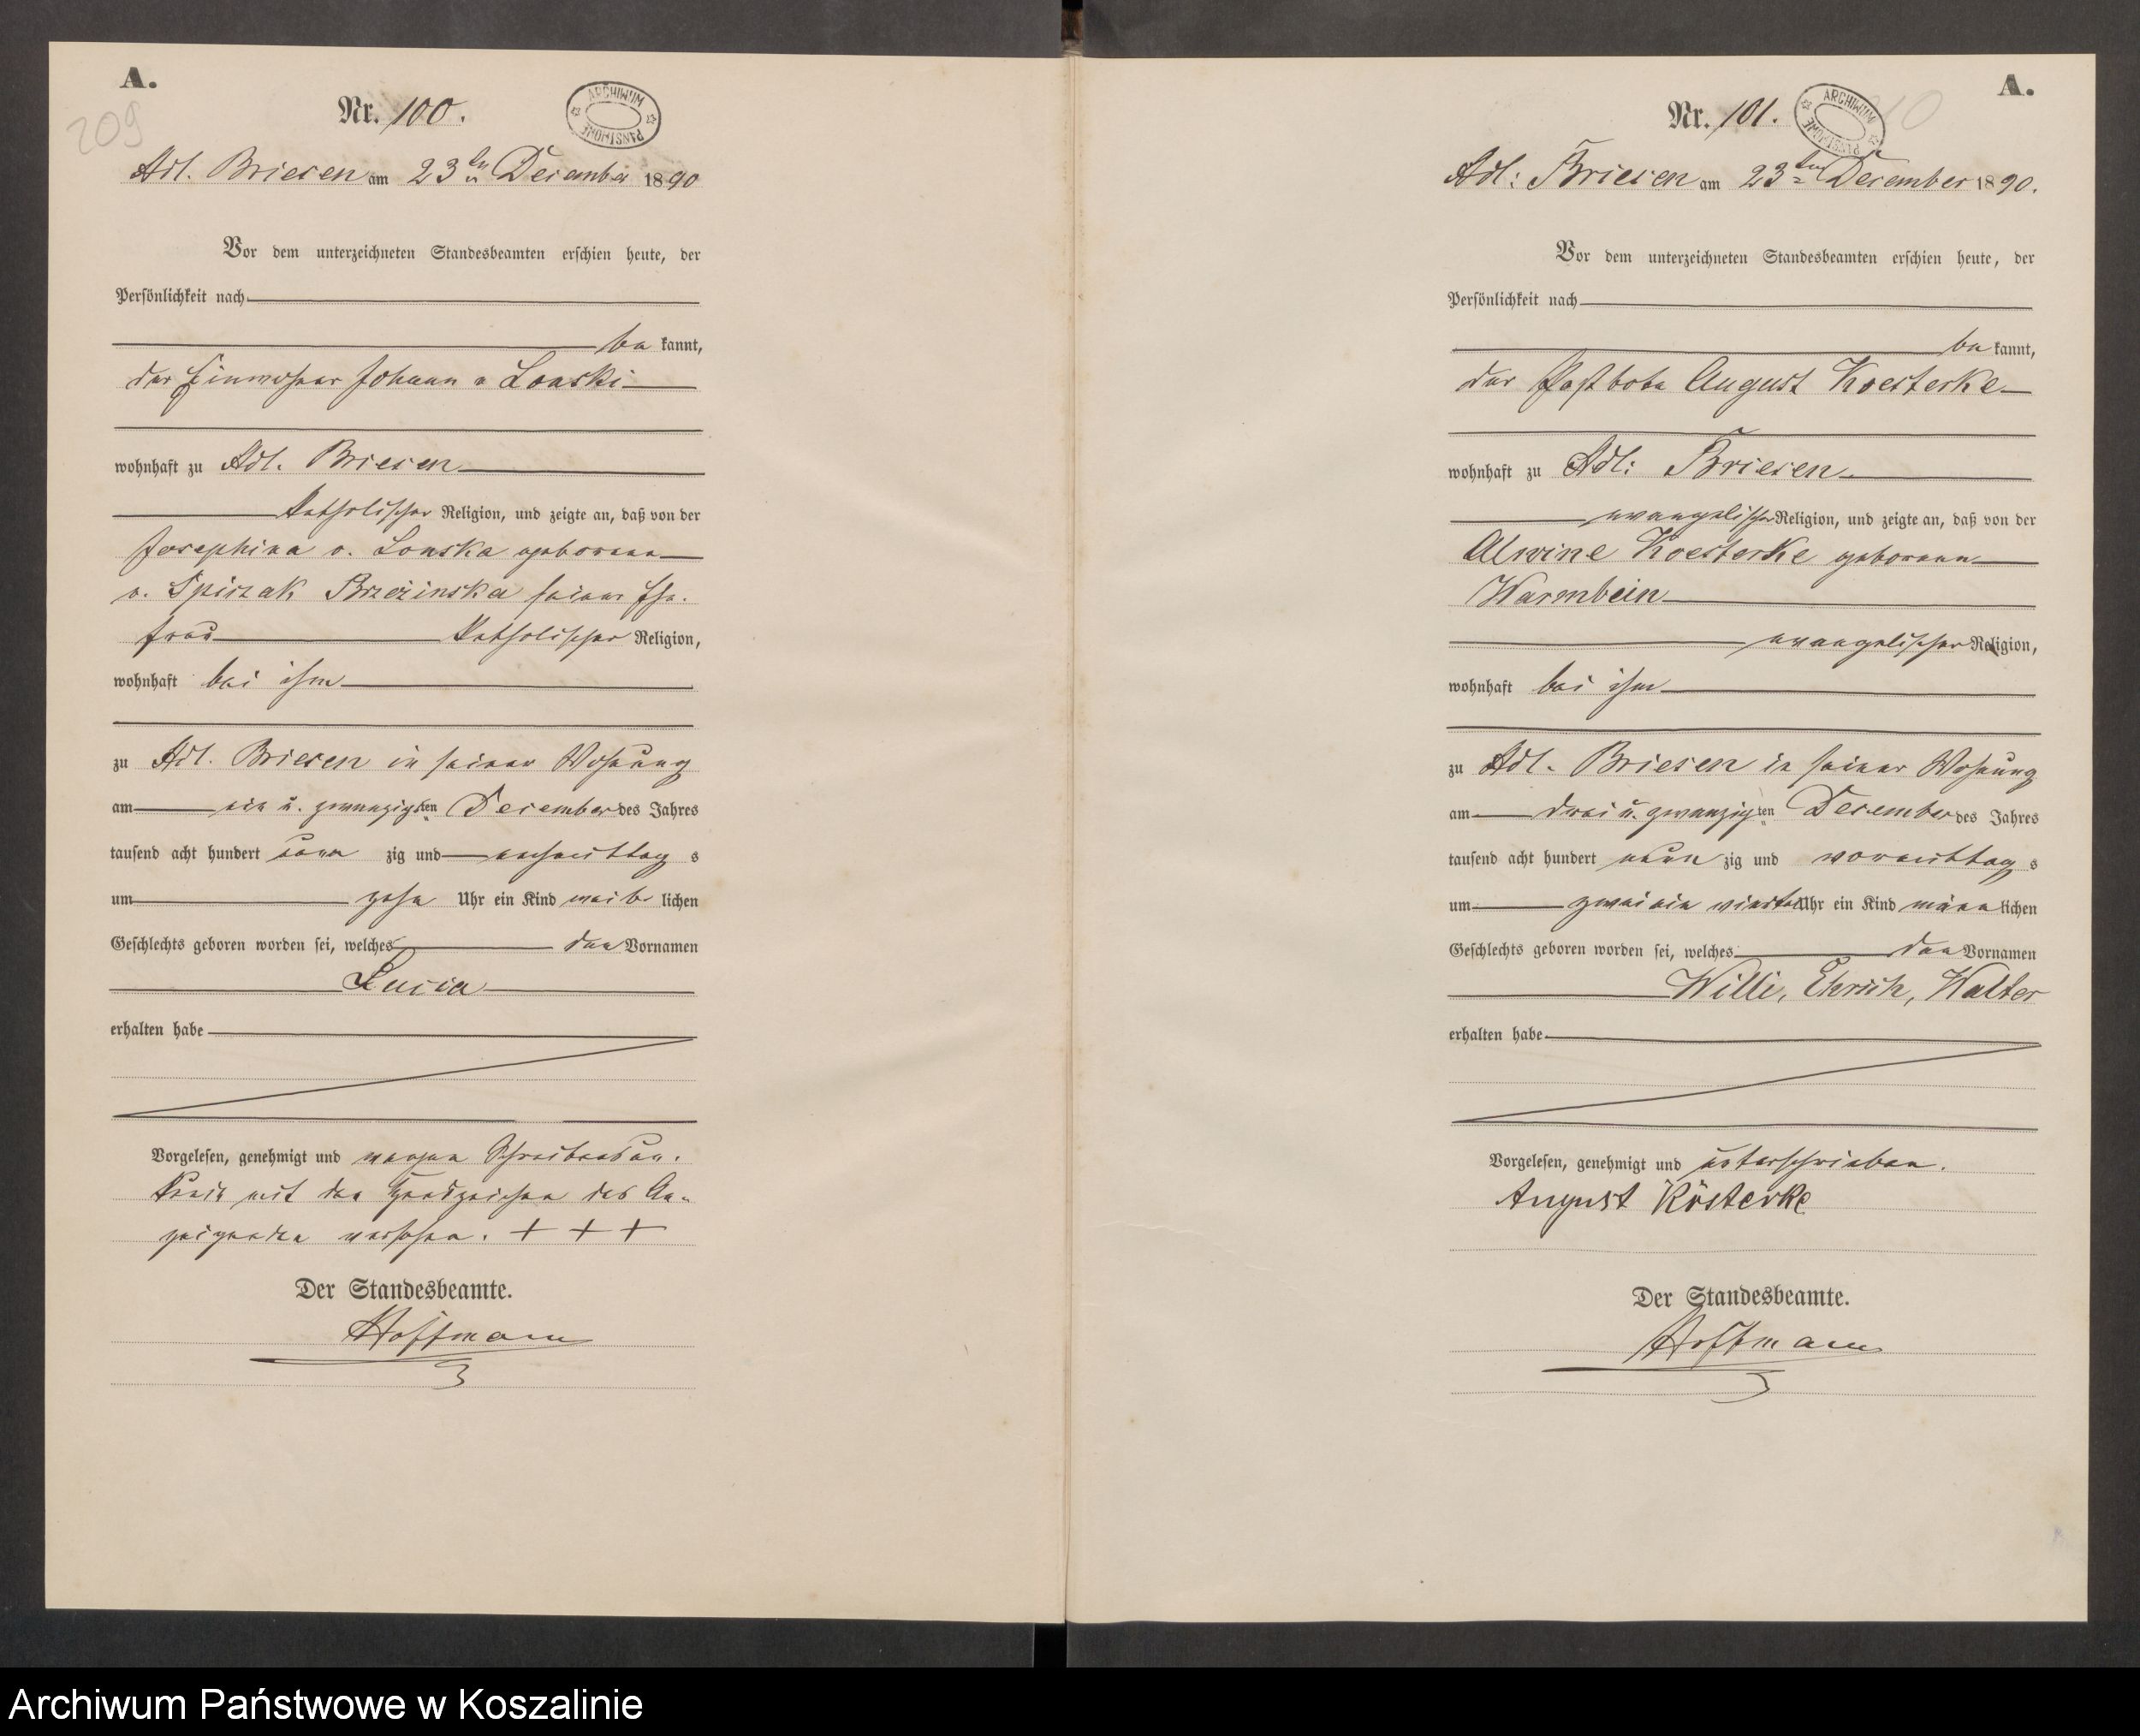 A.
209
Nr. 100.
ARCHIWUM PAŃSTWOWE
Adl. Briesen am 23ten December 1890
Vor dem unterzeichneten Standesbeamten erschien heute, der
Persönlichkeit nach
be kannt,
der Einwohner Johann v Lonski
wohnhaft zu Adl. Briesen
katholischer Religion, und zeigte an, daß von der
Josephina v. Lonska geborene
v. Spiczak Brzezinska seiner Ehe-
frau katholischer Religion,
wohnhaft bei ihm
zu Adl. Briesen in seiner Wohnung
am ein u. zwanzigsten December des Jahres
tausend acht hundert neun zig und nachmittag s
um zehn Uhr ein Kind weib lichen
Geschlechts geboren worden sei, welches den Vornamen
Lucia
erhalten habe
Vorgelesen, genehmigt und wegen Schreibensun-
kunde mit den Handzeichen des An-
zeigenden versehen. + + +
Der Standesbeamte.
Hoffmann
A.
Nr. 101.
ARCHIWUM PAŃSTWOWE
Adl: Briesen am 23ten December 1890.
Vor dem unterzeichneten Standesbeamten erschien heute, der
Persönlichkeit nach
be kannt,
der Postbote August Koesterke
wohnhaft zu Adl: Briesen
evangelischer Religion, und zeigte an, daß von der
Alwine Koesterke geborenen
Warmbein
evangelischer Religion,
wohnhaft bei ihm
zu Adl. Briesen in seiner Wohnung
am drei u. zwanzigsten December des Jahres
tausend acht hundert neun zig und vormittag s
um zwei ein viertel Uhr ein Kind männ lichen
Geschlechts geboren worden sei, welches den Vornamen
Willi, Ehrich, Walter
erhalten habe
Vorgelesen, genehmigt und unterschrieben.
August Kösterke
Der Standesbeamte.
Hoffmann
Archiwum Państwowe w Koszalinie